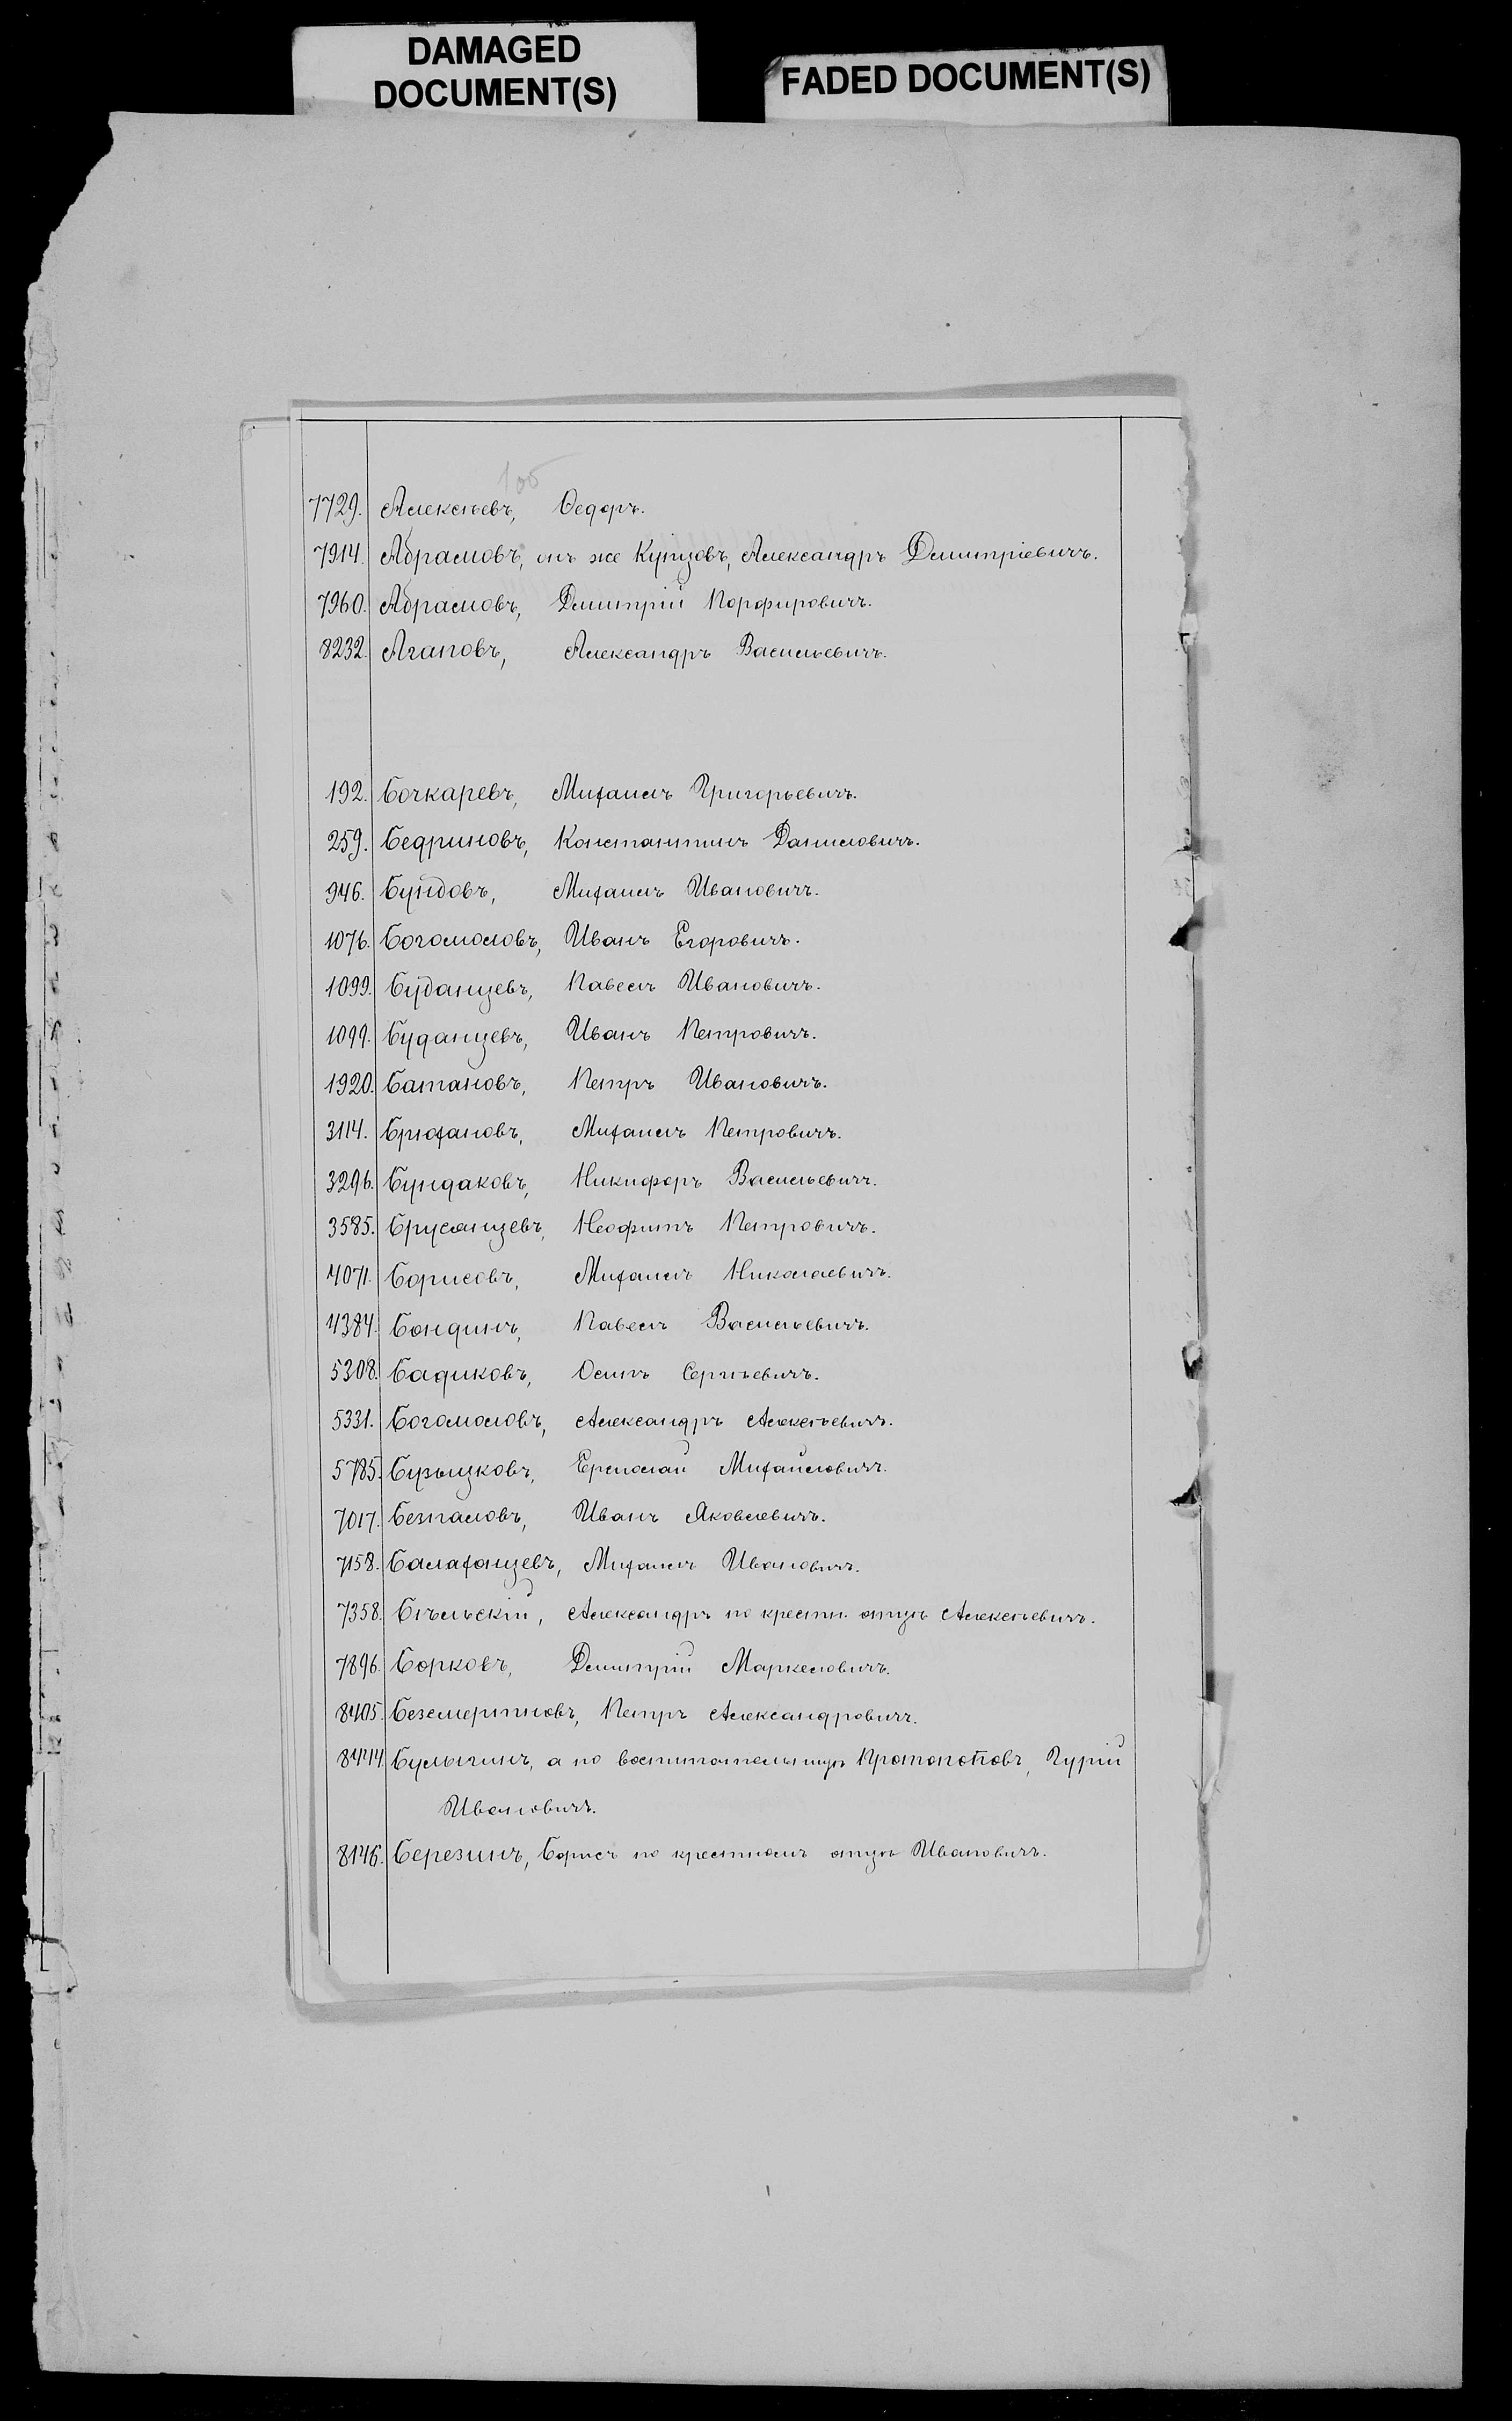 DAMAGED
DOCUMENT(S)
FADED DOCUMENT(S)
7729. Алексѣевъ, Ѳедоръ.
7914. Абрамовъ, онъ же Купцовъ, Александръ Дмитріевичъ.
7960. Абрамовъ, Дмитрій Порфировичъ.
8232. Агаповъ, Александръ Васильевичъ.
192. Бочкаревъ, Михаилъ Григорьевичъ.
259. Бедриновъ, Константинъ Даниловичъ.
946. Бундовъ, Михаилъ Ивановичъ.
1076. Богомоловъ, Иванъ Егоровичъ.
1099. Буданцевъ, Павелъ Ивановичъ.
1099. Буданцевъ, Иванъ Петровичъ.
1920. Батановъ, Петръ Ивановичъ.
3114. Брюхановъ, Михаилъ Петровичъ.
3296. Бундаковъ, Никифоръ Васильевичъ.
3585. Брусянцевъ, Неофитъ Петровичъ.
4071. Борисовъ, Михаилъ Николаевичъ.
4384. Бондинъ, Павелъ Васильевичъ.
5308. Бадиковъ, Осипъ Сергѣевичъ.
5331. Богомоловъ, Александръ Алексѣевичъ.
5785. Бузыцковъ, Ермолай Михайловичъ.
7017. Безпаловъ, Иванъ Яковлевичъ.
7158. Балаханцевъ, Михаилъ Ивановичъ.
7358. Бѣльскій, Александръ по крестн. отцу Алексѣевичъ.
7896. Борковъ, Дмитрій Маркеловичъ.
8405. Безсмертновъ, Петръ Александровичъ.
8444. Булыгинъ, а по воспитательницѣ Протопоповъ, Гурій
Ивановичъ.
8446. Березинъ, Борисъ по крестномъ отцѣ Ивановичъ.